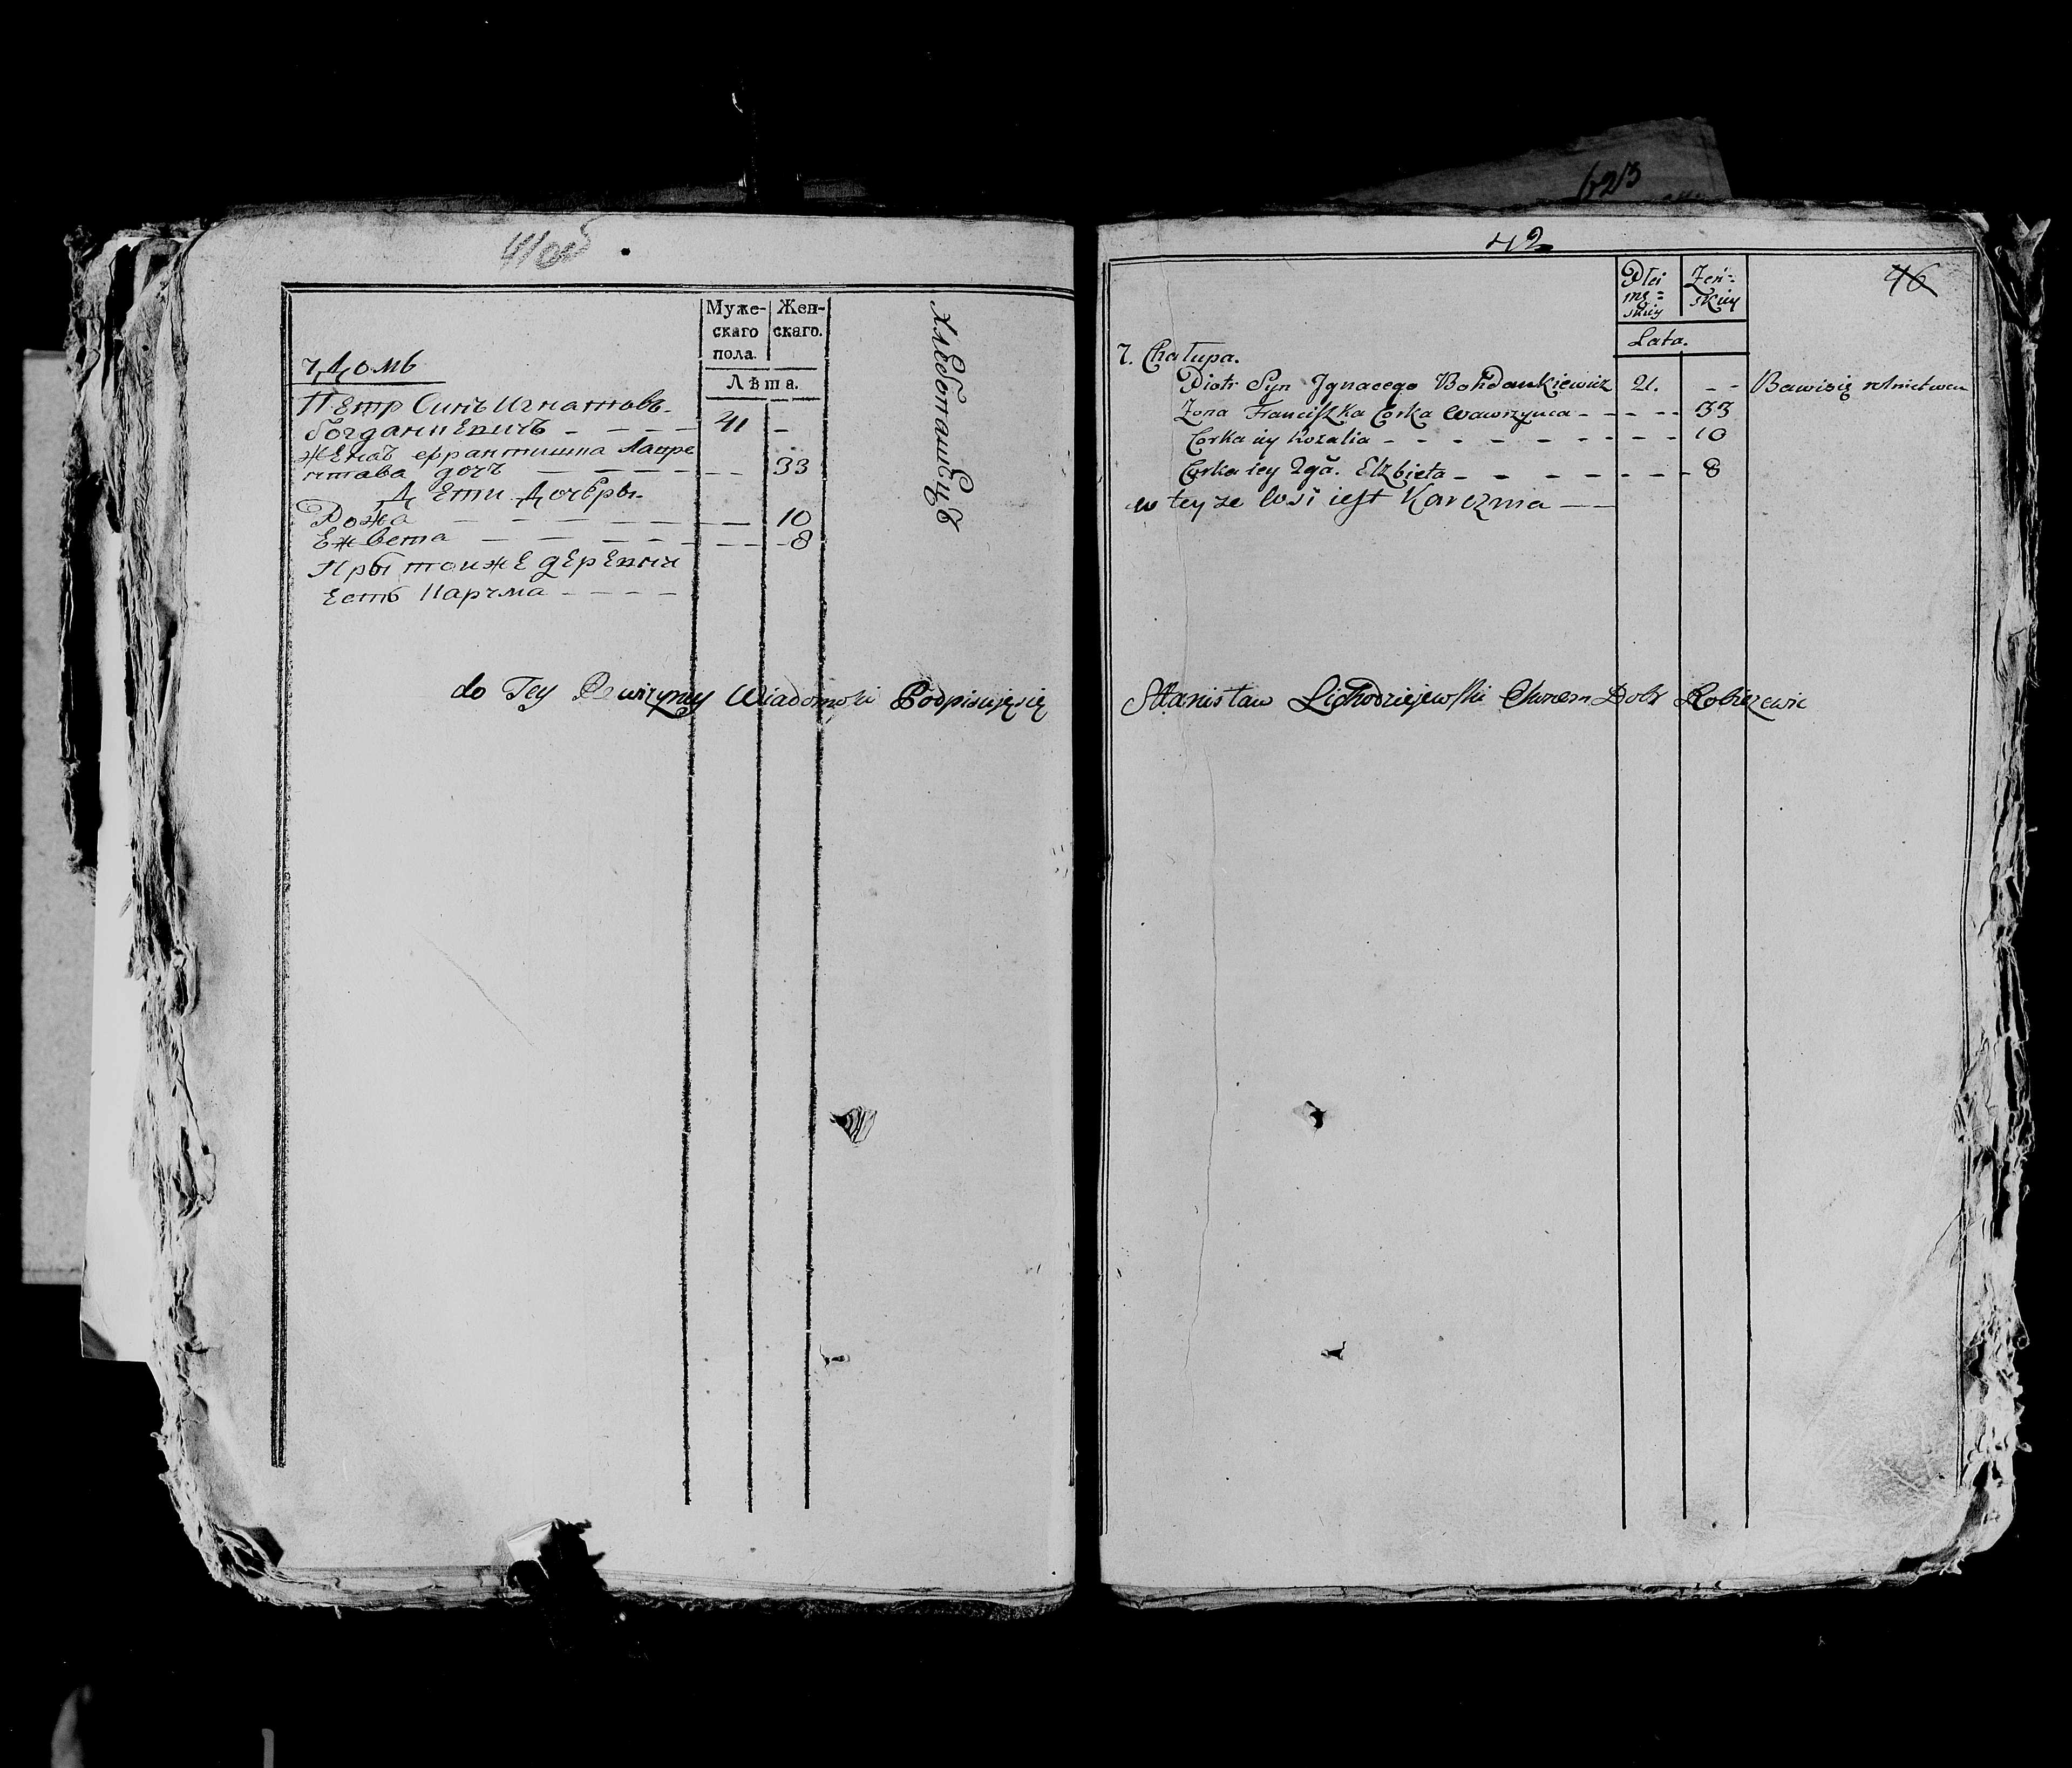 623
41об
Муже-
скаго
пола.
Жен-
скаго.
Лѣта.
7 Домъ
Петр Синъ Игнатовъ
Богданкевичъ - - - - 41 -
Жена Франтишка Лавре
нтава дочъ - - - - - - 33
Дети Дочеры
Рожа - - - - - - 10
Ежбета - - - - - - 8
Пры тоиже деревни
Естъ Карчма - - - -
Хлебопашецъ
do Tey Rewizyney Wiadomości Podpisuję się
42
46
Płci
mę=
skiey
Żeń=
skiey
Lata.
7. Chałupa.
Piotr Syn Jgnacego Bohdankiewicz 41. - - Bawi się rolnictwem
Zona Franciszka Corka Wawrzynca - - - - - 33
Corka ich Rozalia - - - - - - - - - 10
Corka icy 2gā. Elzbieta - - - - - - - 8
w tey ze wsi iest Karczma - -
Stanisław Lichodziejewski Ekonom Dobr